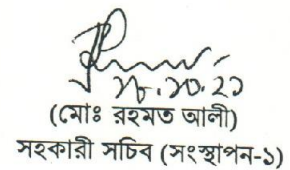 ২৮.১০.২১
(মোঃ রহমত আলী)
সহকারী সচিব (সংস্থাপন-১)